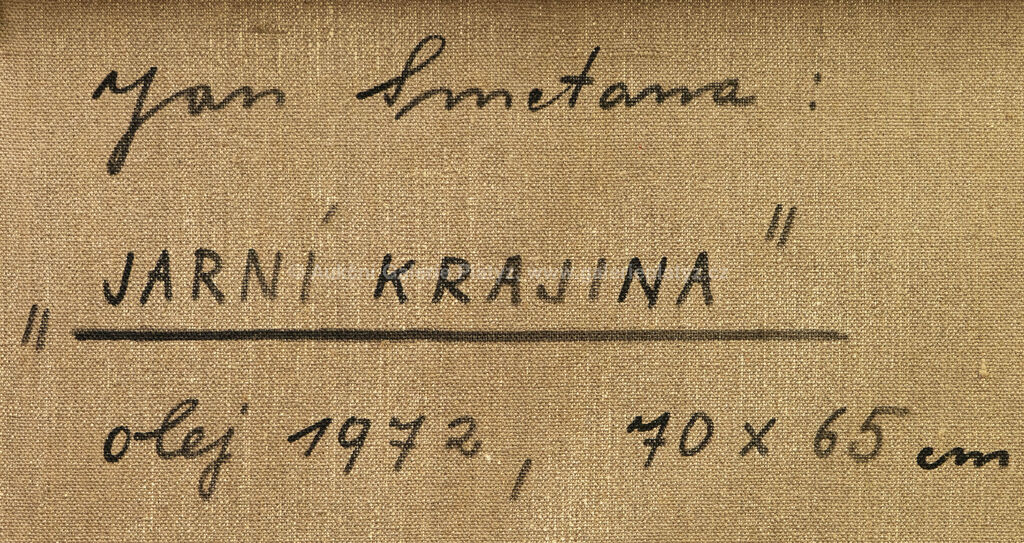 Jan Smetana :
„JARNÍ KRAJINA"
olej 1972, 70 x 65 cm